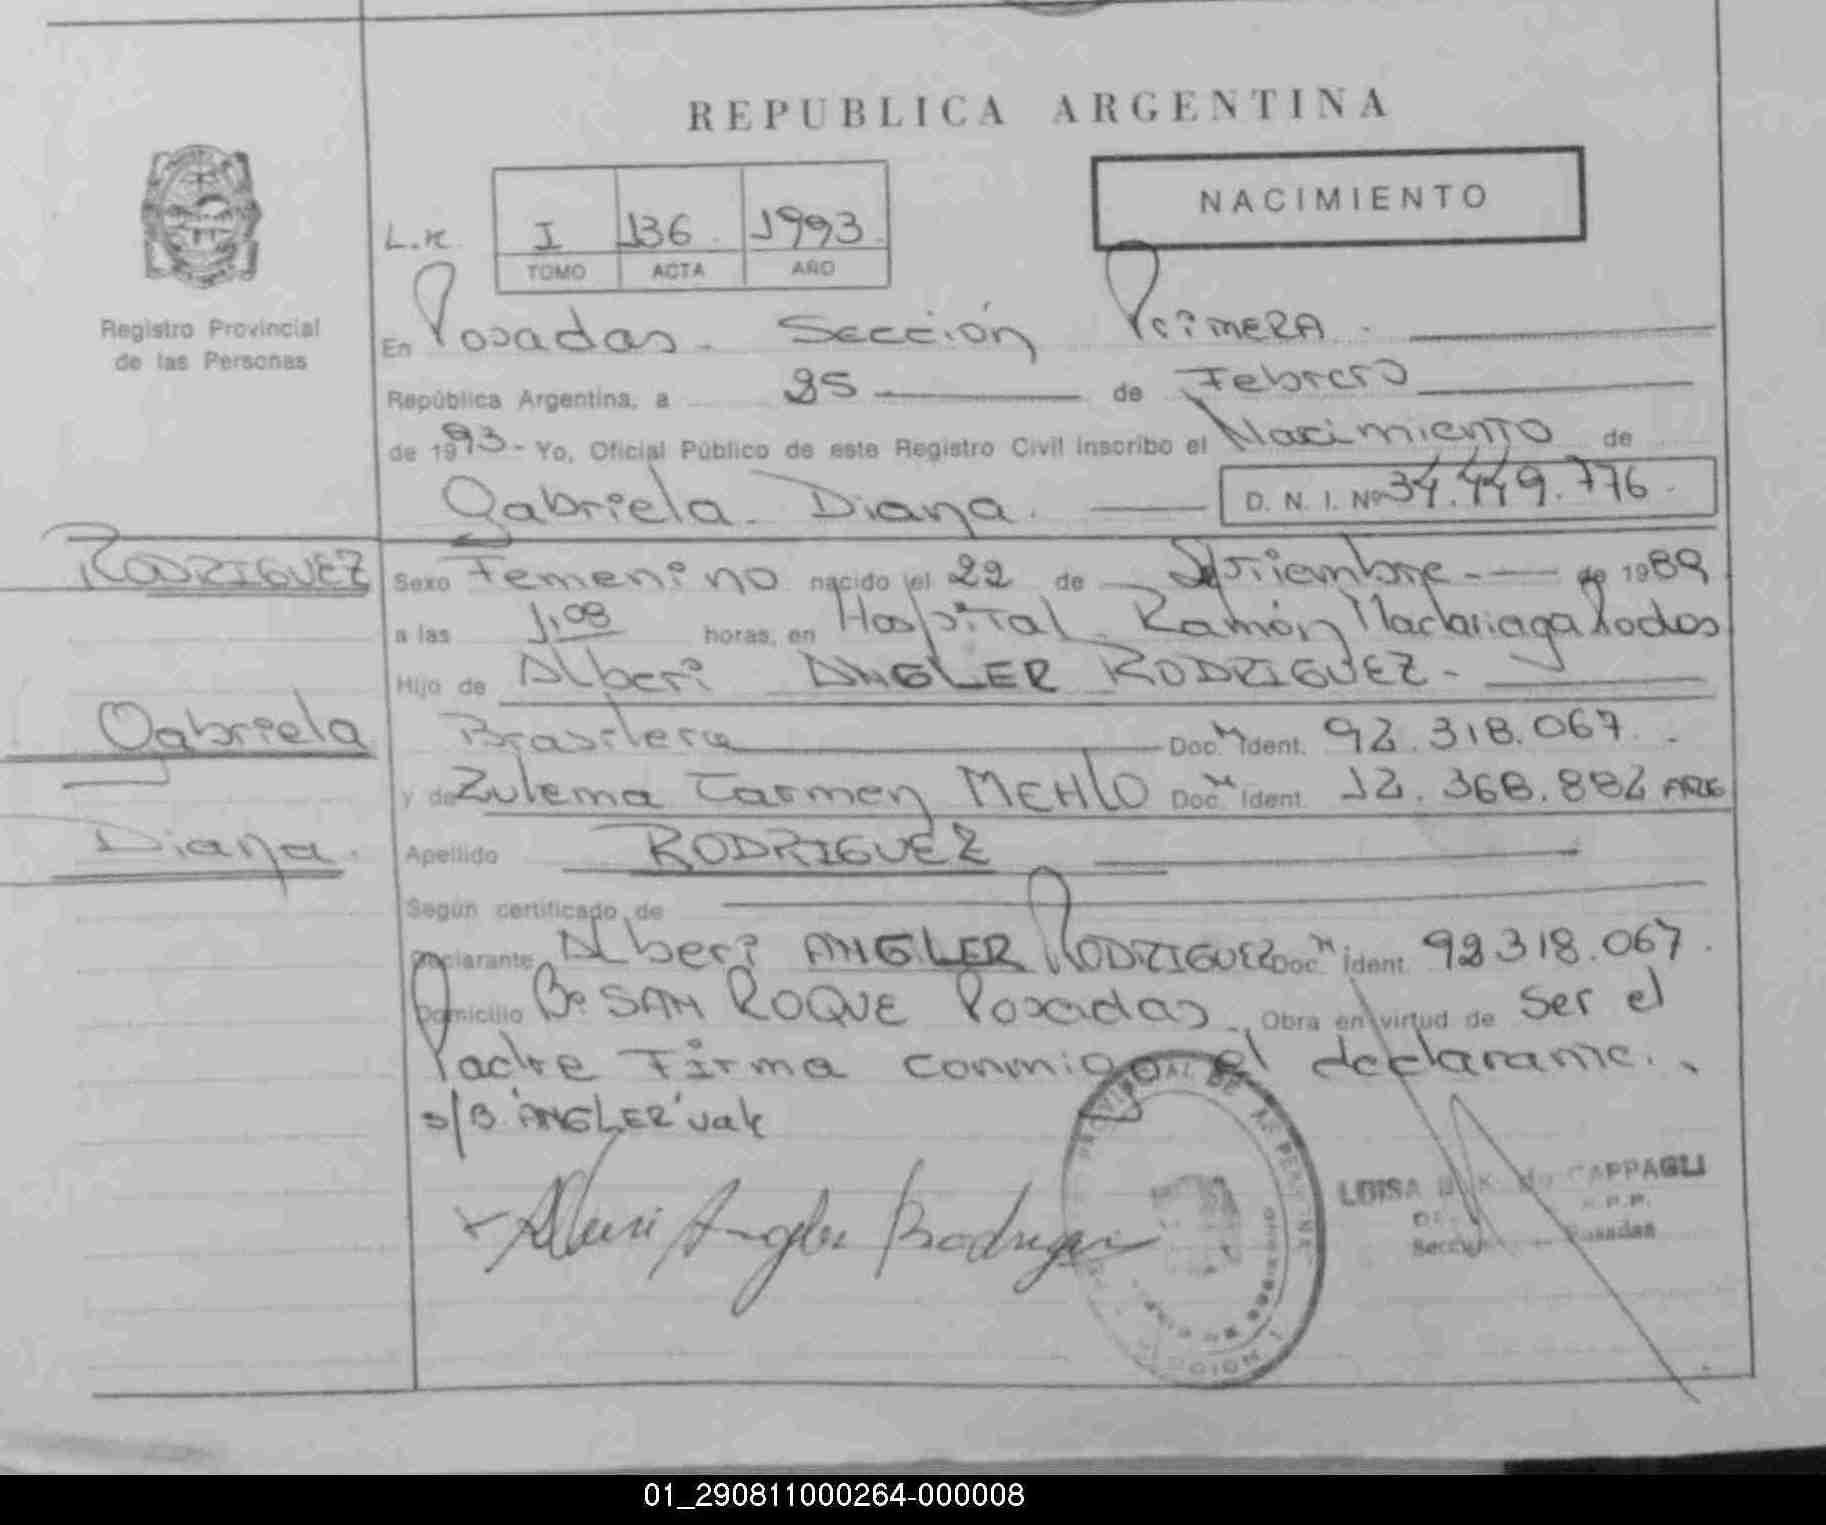 REPUBLICA ARGENTINA
NACIMIENTO
L.R. I 136. 1993.
TOMO ACTA AÑO
Registro Provincial
de las Personas
En Posadas. Sección Primera.
República Argentina, a 25 de Febrero
de 1993 - Yo, Oficial Público de este Registro Civil inscribo el Nacimiento de
Gabriela Diana. D. N. I. Nº 34.449.776.
RODRIGUEZ
Gabriela
Diana.
Sexo Femenino nacido el 22 de Septiembre de 1989
a las 1,08 horas, en Hospital Ramón Madariaga Posadas
Hijo de Alberi ANGLER RODRIGUEZ
Brasilera Doc. M Ident. 92.318.067.
y de Zulema Carmen Doc. M Ident. 12.368.882 ARG
Apellido RODRIGUEZ
Según certificado de
Declarante Alberi ANGLER RODRIGUEZ Doc. M Ident. 92318.067.
Domicilio Bº SAN ROQUE Posadas. Obra en virtud de Ser el
Padre Firma conmigo el declarante.
s/B "ANGLER" vale
Alberi Angler Rodriguez
LUISA K. de CAPPAGLI
Posadas
01_290811000264-000008